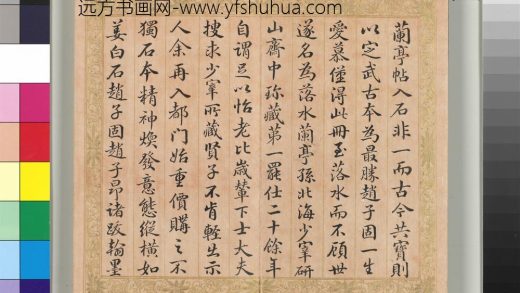 远方书画网-www.yfshuhua.com
蘭亭帖入石非一而古今共寳則
以定武古本為最勝趙子固一生
愛慕僅得此冊至落水而不顧世
遂名為落水蘭亭孫北海少宰研
山齋中珎藏第一罷仕二十餘年
自謂足以怡老比歲輦下士大夫
搜求少宰所藏賢子不肯輕出示
人余再入都门始重價購之不
獨石本精神煥發意態縱橫如
姜白石趙子固趙子昂諸跋翰墨